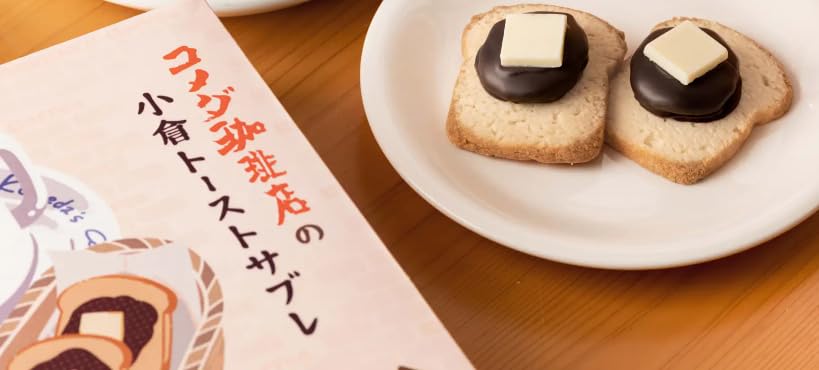 コメダ珈琲店の
小倉トーストサブレ